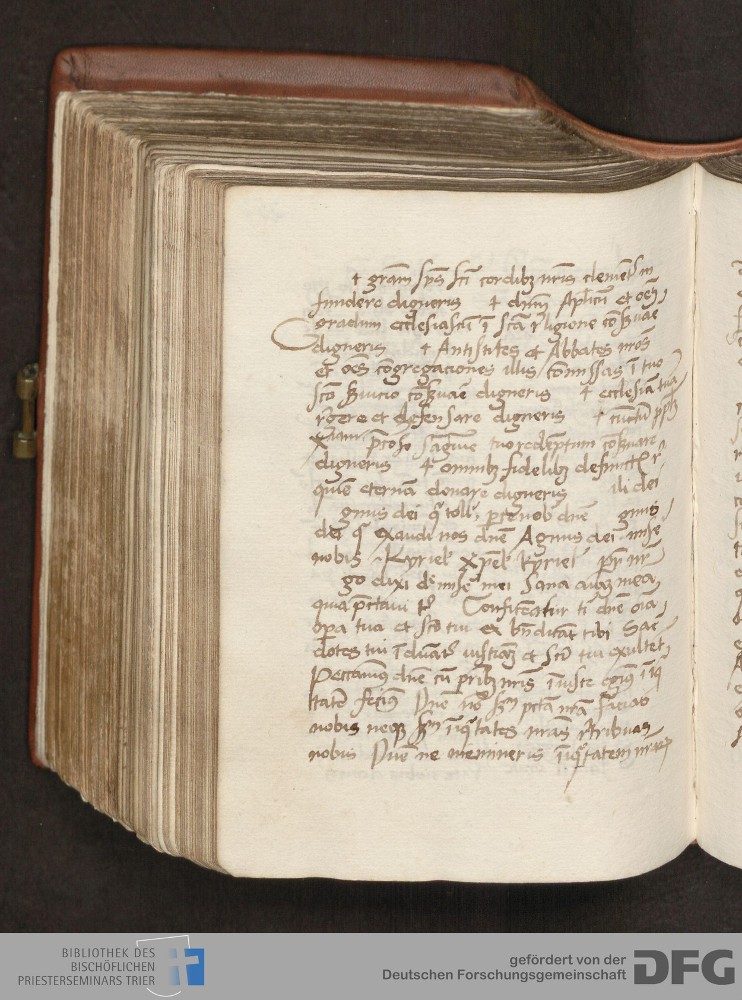 ✝ grām sp̄s sc̄i cordibꝫ nr̄is clement͛ in
fundere digneris ✝ dn̄m Apl̄icū et oēs
gradum ecclesiasticū ī sc̄ta religione cōẜuae
digneris ✝ Antistites et Abbates nr̄os
et oēs cōgregaciones illis cōmissas ī tuo
sc̄o ẜuicio cōẜuae digneris ✝ ecclesiā tuā
regere et defensare digneris ✝ cūctū ppl̄m
x̄ianum p̄ciosō sāgīne tuo redēptum cōẜuare
digneris ✝ omnibꝫ fidelibꝫ defunctis r
quiē eternā donare digneris ili dei
gnus dei q̄ toll' parce nob' dn̄e gnus
dei q̄ exaudi nos dn̄e Agnus dei mise
nobis Kyriel' xp̄el' kyriel' pr̄ nr̄
go dixi dn̄e mise͛ mei Sana aīaꝫ meā
quia pēccaui t' Confiteātur t' dn̄e oīa
opera tua et sc̄i tui bn̄dicāt tibi Sac
dotes tui īduāt͛ iusticiā et sc̄i tui exultēt
Peccauimꝰ dn̄e cū pr̄ibꝫ nr̄is iniuste egimꝰ īiq̄
tatē fecimꝰ Dn̄e nō ẜm pctā nr̄a facias
nobis neqꝫ ẜm īiq̄tates nr̄as retribuas
nobis Dn̄e ne memineris īiq̄tatem nr̄aꝝ
BIBLIOTHEK DES
BISCHÖFLICHEN
PRIESTERSEMINARS TRIER
gefördert von der
Deutschen Forschungsgemeinschaft
DFG